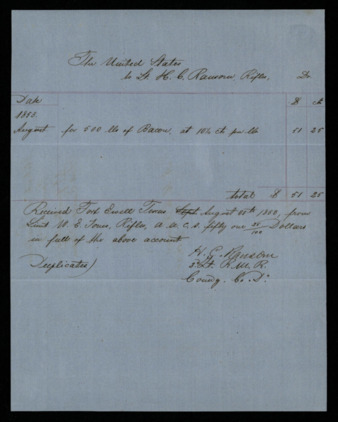 The United States
to Lt. H. C. Ransom Rifles, Dr
Date $ ch
1850.
August for 500 lbs of Bacon, at 10¼ ch per lb 51 25
total $ 51 25
Received Fort Ewell Texas Sept August 1850, from
Lieut W. E. Jones, Rifles, A. A. C. S. fifty one 25/100 Dollars
in full of the above account
Duplicates)
Lt. R. M. R.
Comdg. Co. D.